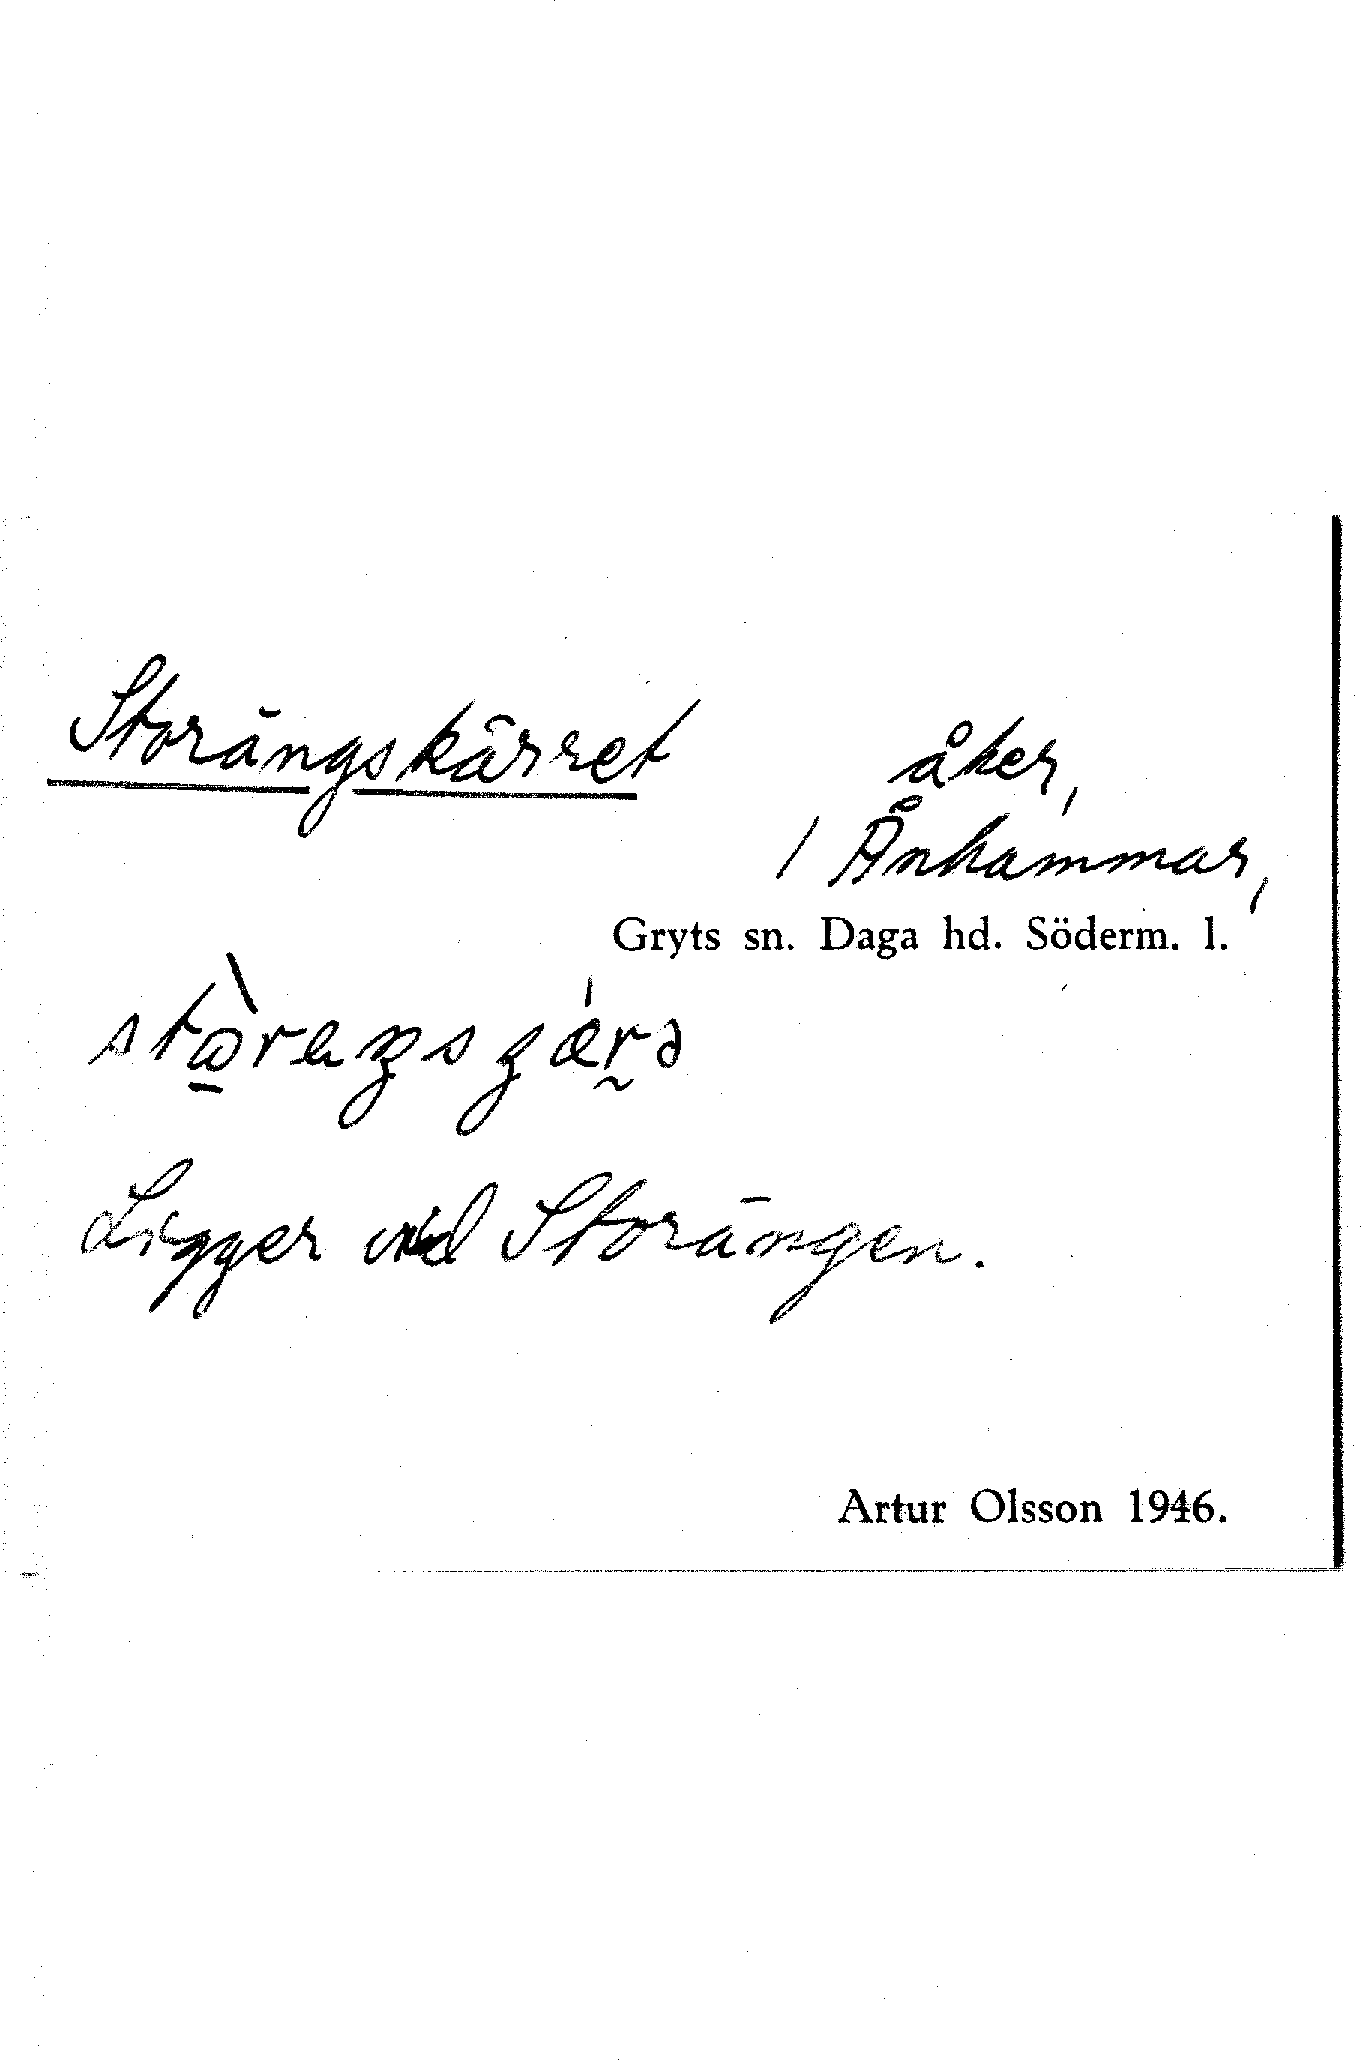 Storängskärret åker,
/ Ånhammar,
Gryts sn. Daga hd. Söderm. l.
Ligger vid Storängen.
Artur Olsson 1946.